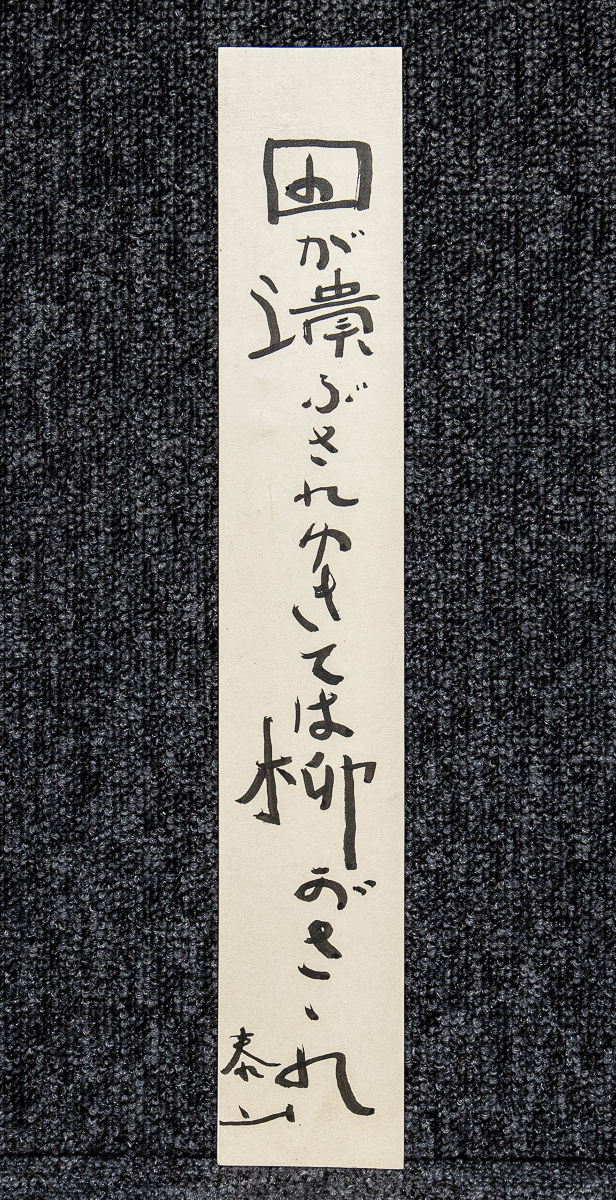 田が潰ぶされゆきては柳がさゝれ
泰山